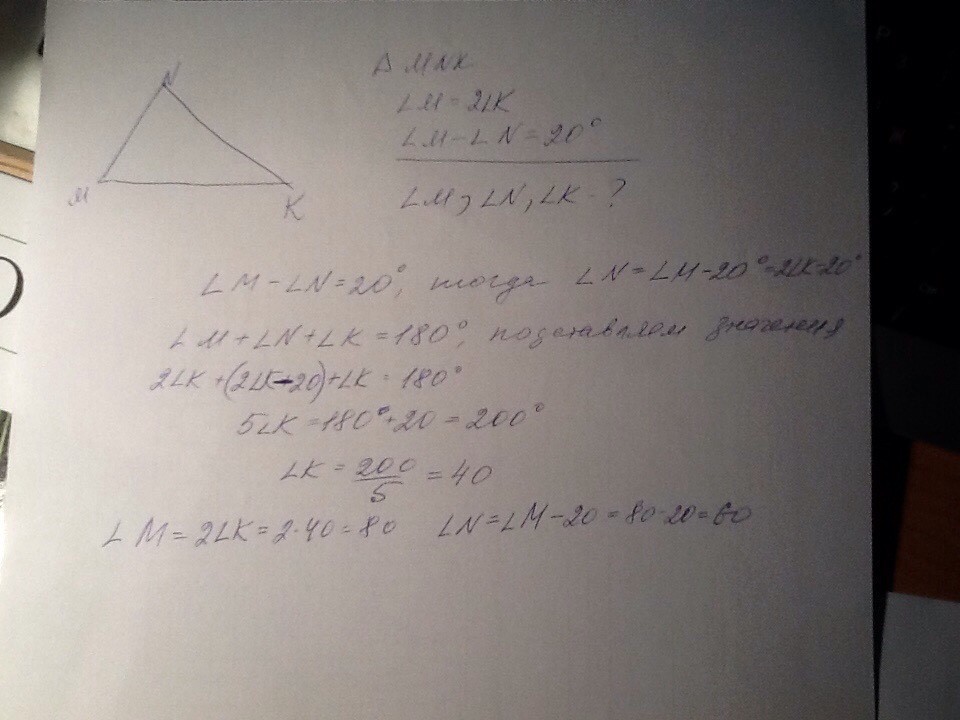 N
M
K
Δ MNK
∠M = 2∠K
∠M - ∠N = 20°
∠M, ∠N, ∠K - ?
∠M - ∠N = 20°, тогда ∠N = ∠M - 20° = 2∠K - 20°
∠M + ∠N + ∠K = 180°, подставляем значения
2∠K + (2∠K - 20) + ∠K = 180°
5∠K = 180° + 20 = 200°
∠K = 200/5 = 40
∠M = 2∠K = 2·40 = 80 ∠N = ∠M - 20 = 80 - 20 = 60